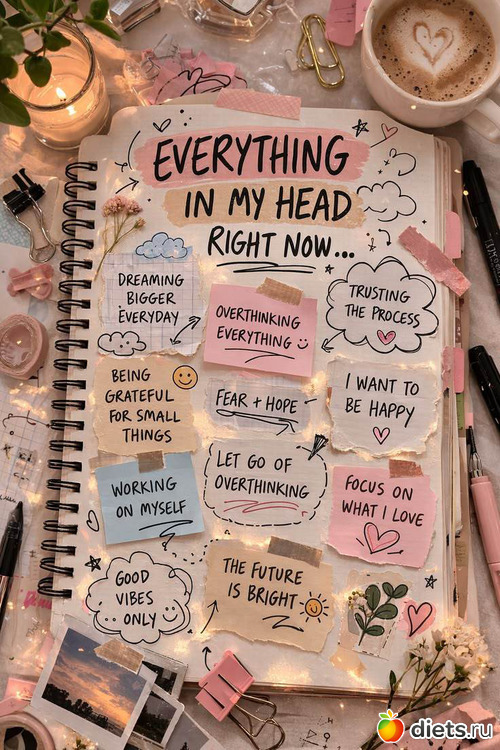 EVERYTHING
IN MY HEAD
RIGHT NOW...
DREAMING
BIGGER
EVERYDAY
OVERTHINKING
EVERYTHING
TRUSTING
THE PROCESS
BEING
GRATEFUL
FOR SMALL
THINGS
FEAR + HOPE
I WANT TO
BE HAPPY
WORKING
ON MYSELF
LET GO OF
OVERTHINKING
FOCUS ON
WHAT I LOVE
GOOD
VIBES
ONLY
THE FUTURE
IS BRIGHT
diets.ru